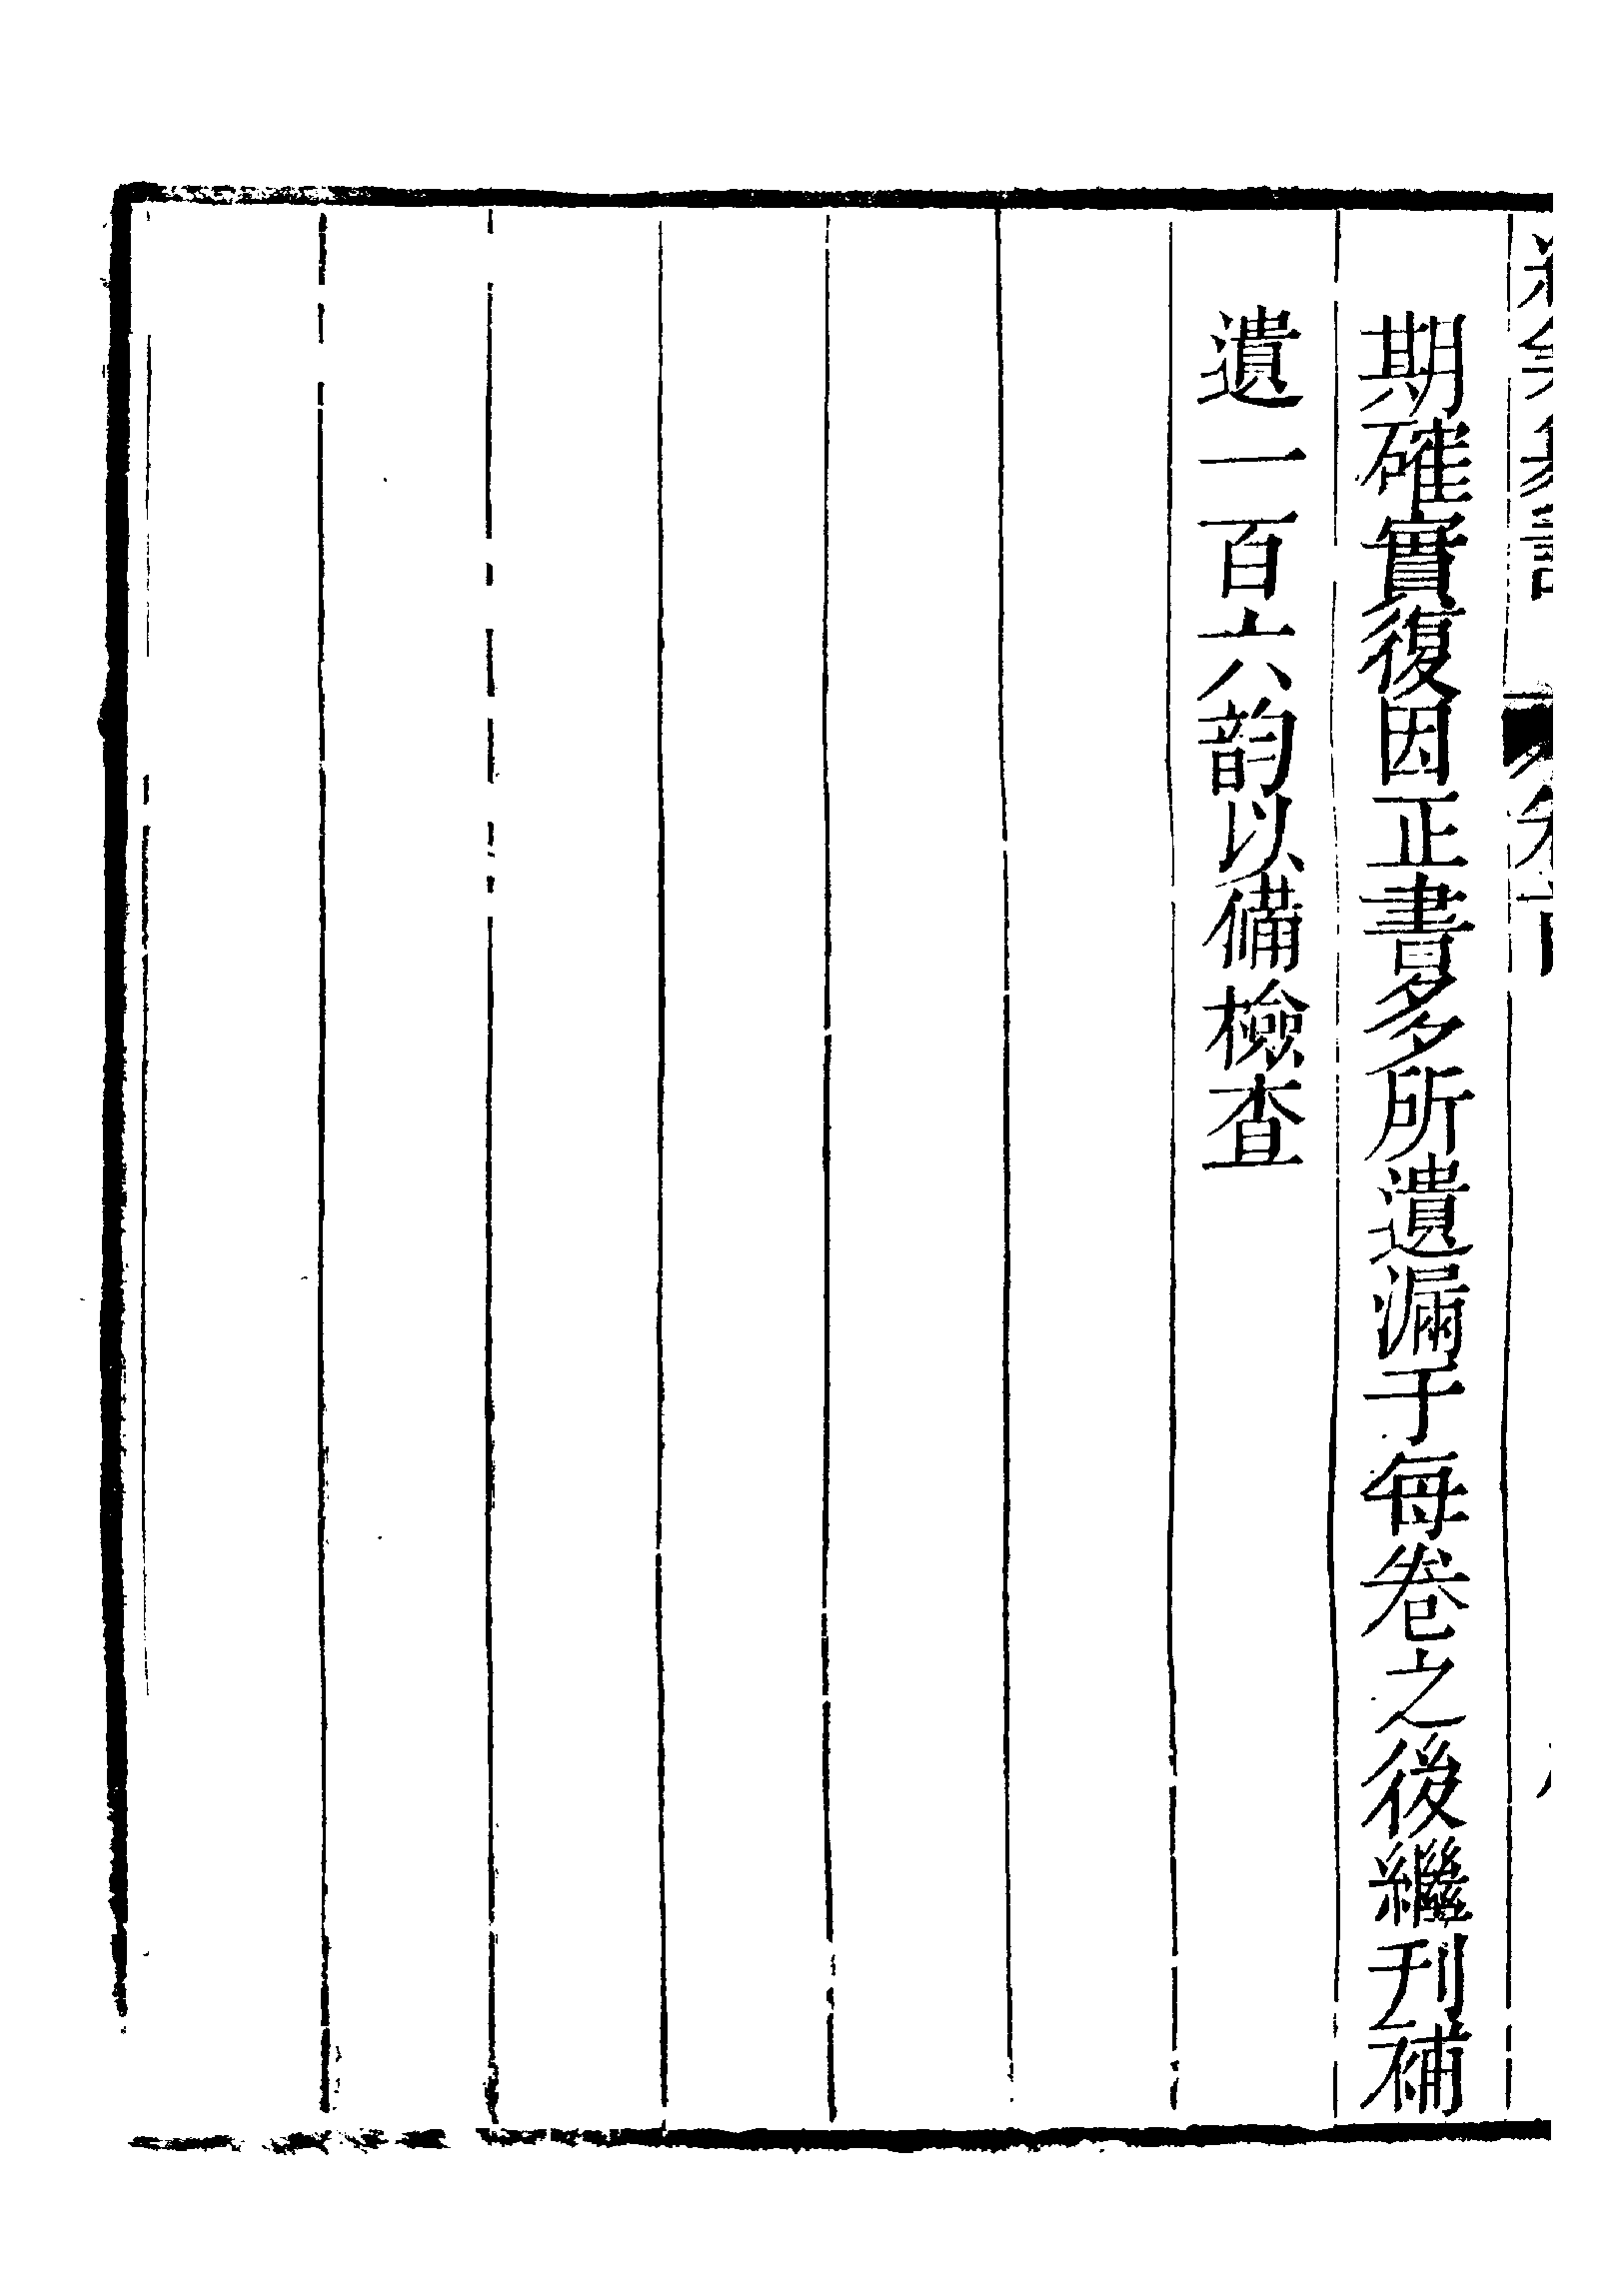 期確實復因正書多所遺漏于每卷之後繼刊補
遺一百六韵以備檢查